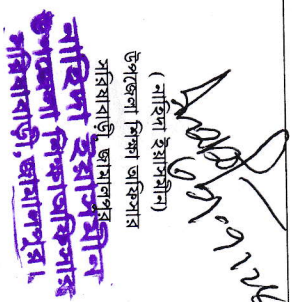 (নাহিদা ইয়াসমীন)
উপজেলা শিক্ষা অফিসার
সরিষাবাড়ী জামালপুর
নাহিদা ইয়াসমীন
উপজেলা শিক্ষা অফিসার
সরিষাবাড়ী, জামালপুর।